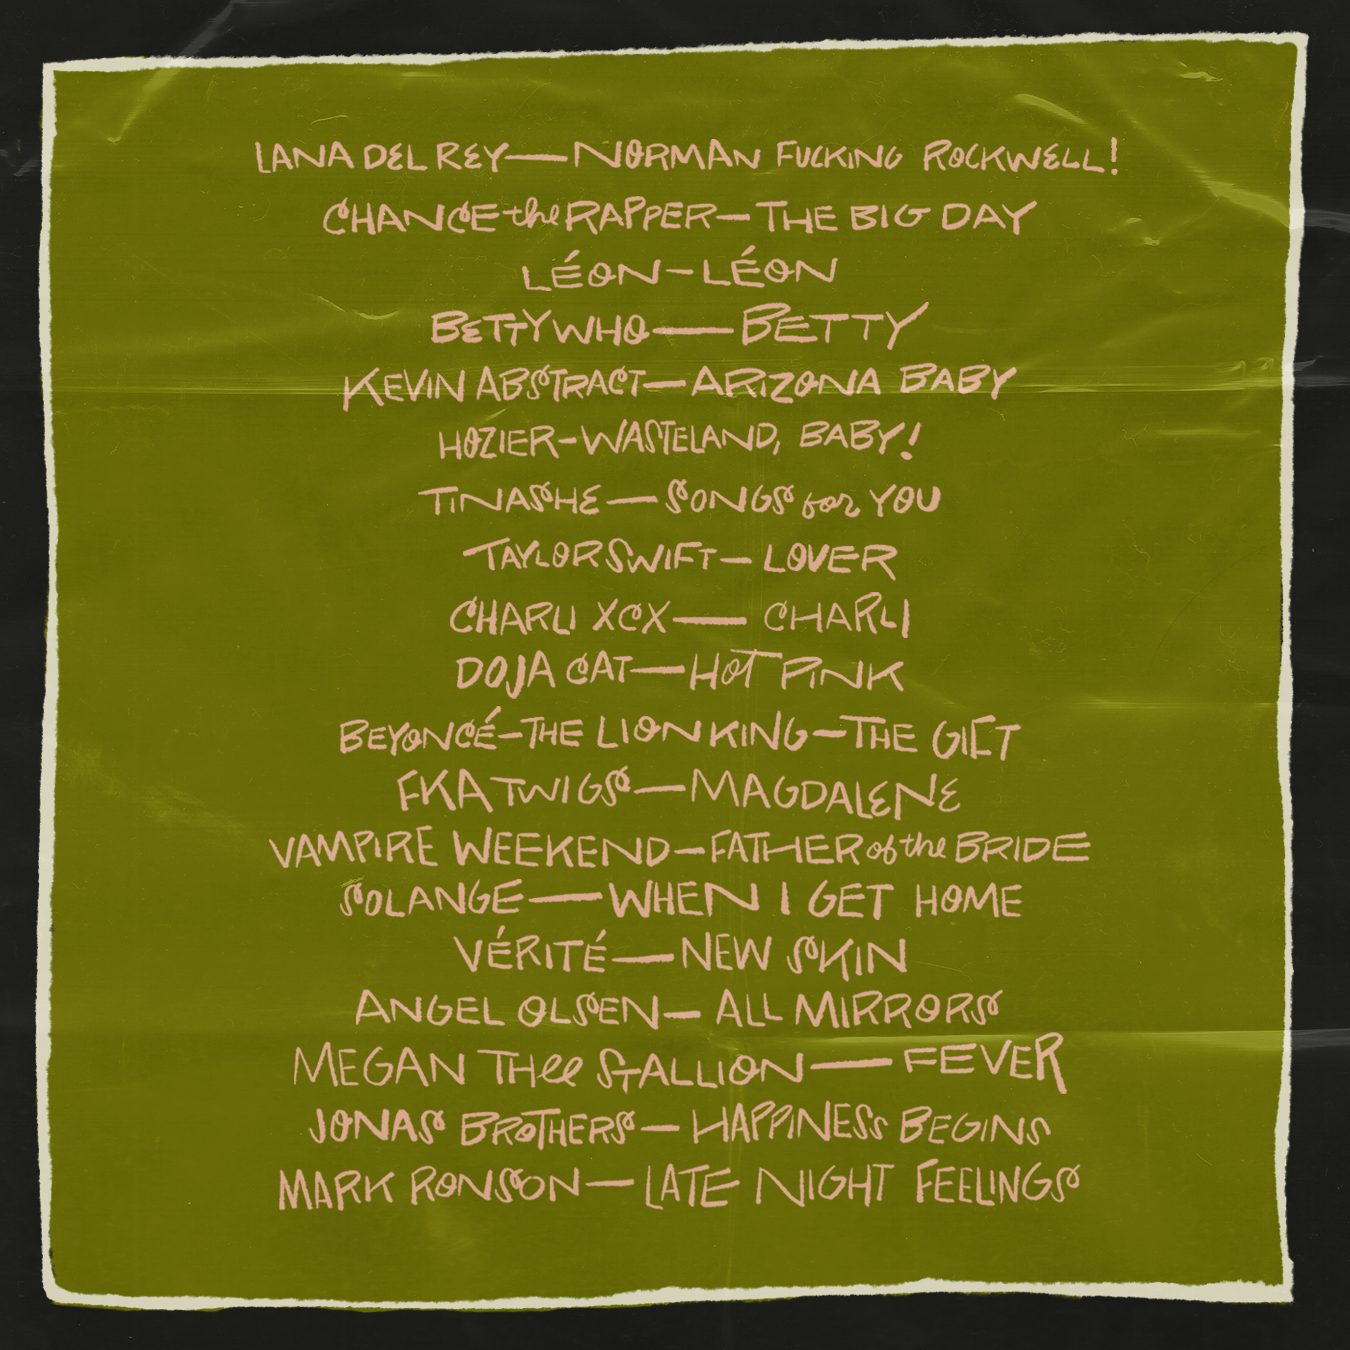 LANA DEL REY—NORMAN FUCKING ROCKWELL!
CHANCE the RAPPER—THE BIG DAY
LÉON—LÉON
BETTY WHO—BETTY
KEVIN ABSTRACT—ARIZONA BABY
HOZIER—WASTELAND, BABY!
TINASHE—SONGS for YOU
TAYLOR SWIFT—LOVER
CHARLI XCX—CHARLI
DOJA CAT—HOT PINK
BEYONCÉ—THE LION KING—THE GIFT
FKA TWIGS—MAGDALENE
VAMPIRE WEEKEND—FATHER of the BRIDE
SOLANGE—WHEN I GET HOME
VÉRITÉ—NEW SKIN
ANGEL OLSEN—ALL MIRRORS
MEGAN THEE STALLION—FEVER
JONAS BROTHERS—HAPPINESS BEGINS
MARK RONSON—LATE NIGHT FEELINGS